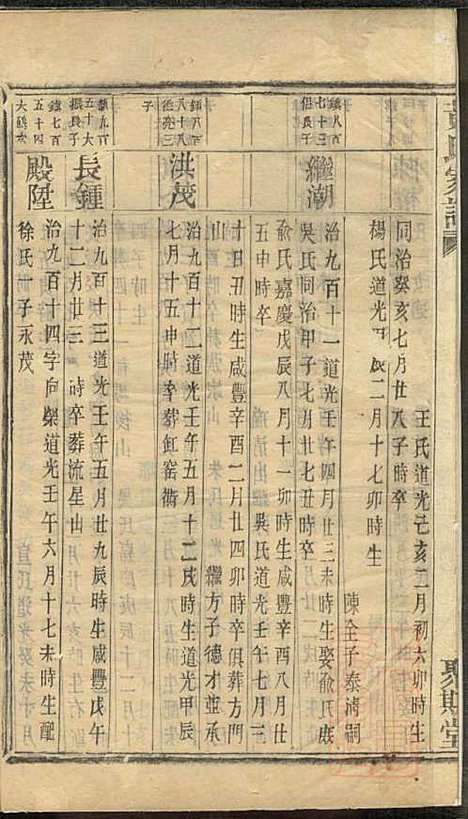 黄氏家譜
聚斯堂
王氏道光己亥二月初六卯時生
同治癸亥七月廿八子時卒
楊氏道光 辰二月十七卯時生
陳全子泰清嗣
鎮八百七十三侶長子
繼潮
治九百十一道光壬午四月廿三未時生娶俞氏庶
吳氏同治甲子七月廿七丑時卒
俞氏嘉慶戊辰八月十一卯時生咸豐辛酉八月
五申時卒 吳氏道光壬午七月三
十日丑時生咸豐辛酉二月廿四卯時卒俱葬方門
山 繼方子德才並承
鎮八百八十八徳亮三子
洪茂
治九百十二道光壬午五月十二戌時生道光甲辰
七月十五申時卒葬缸窑衕
鎮九百五十大振長子
長鍾
治九百十三道光壬午五月廿九辰時生咸豐戊午
十二月廿三 時卒葬流星山
鎮七百五十四大鶴
殿陞
治九百十四字向榮道光壬午六月十七未時生配
徐氏 子永茂